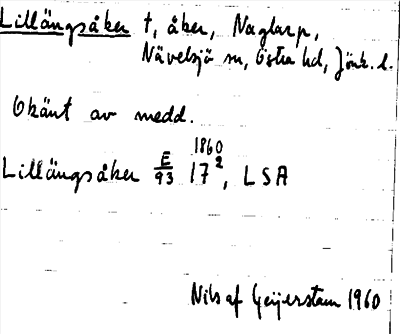 Lillängsåker t, åker, Naglarp,
Nävelsjö sn, Östra hd, Jönk. l.
Okänt av medd.
1860
Lillängsåker E/93 17², LSA
Nils af Geijerstam 1960